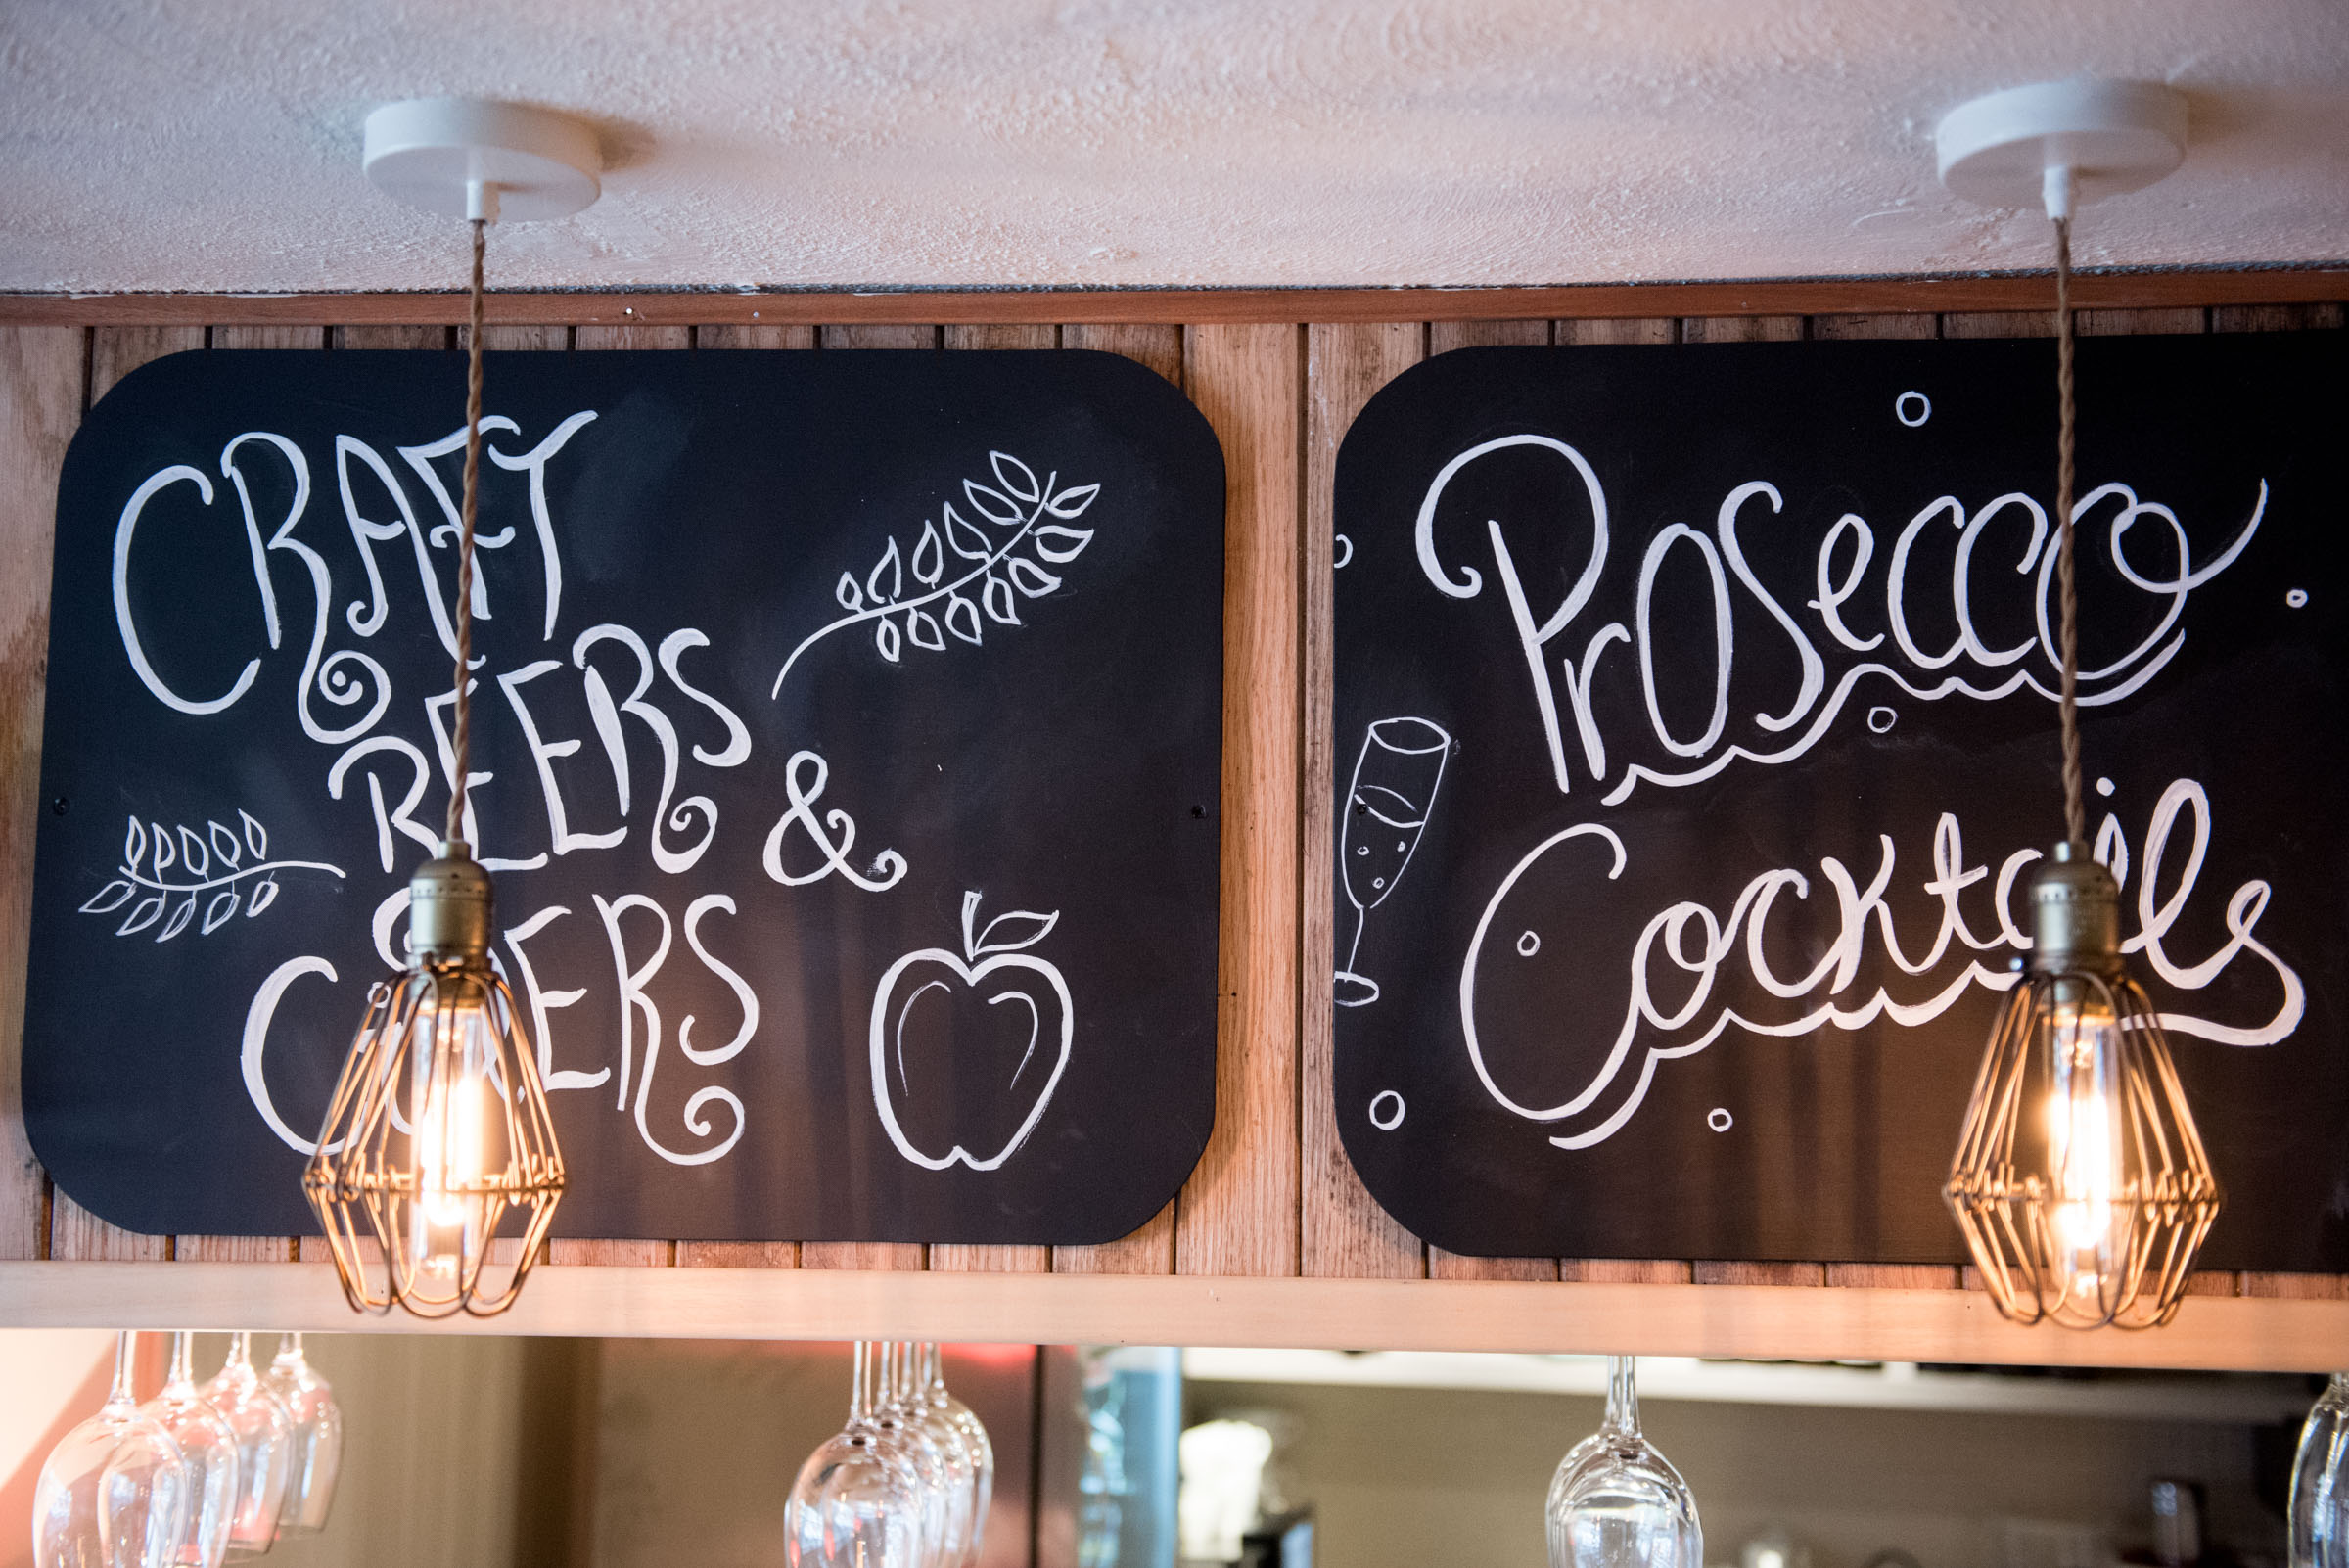 CRAFT
BEERS &
CIDERS
Prosecco
Cocktails